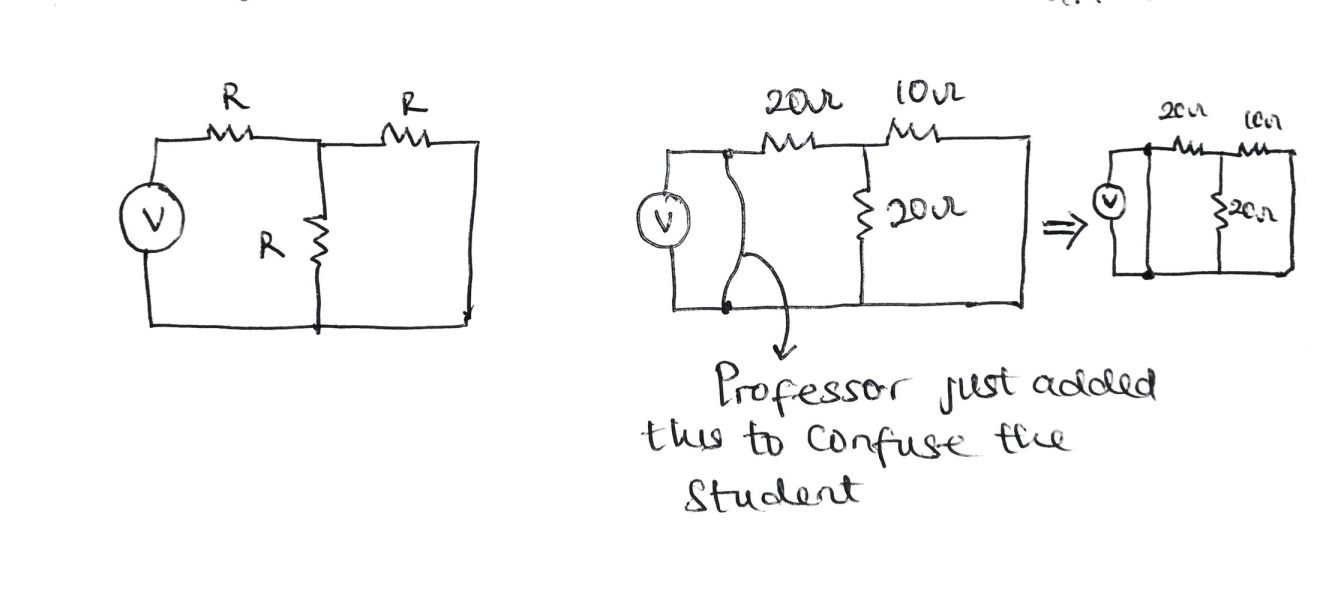 R
R
V
R
20Ω
10Ω
V
20Ω
⇒
20Ω
10Ω
V
20Ω
Professor just added
this to confuse the
Student